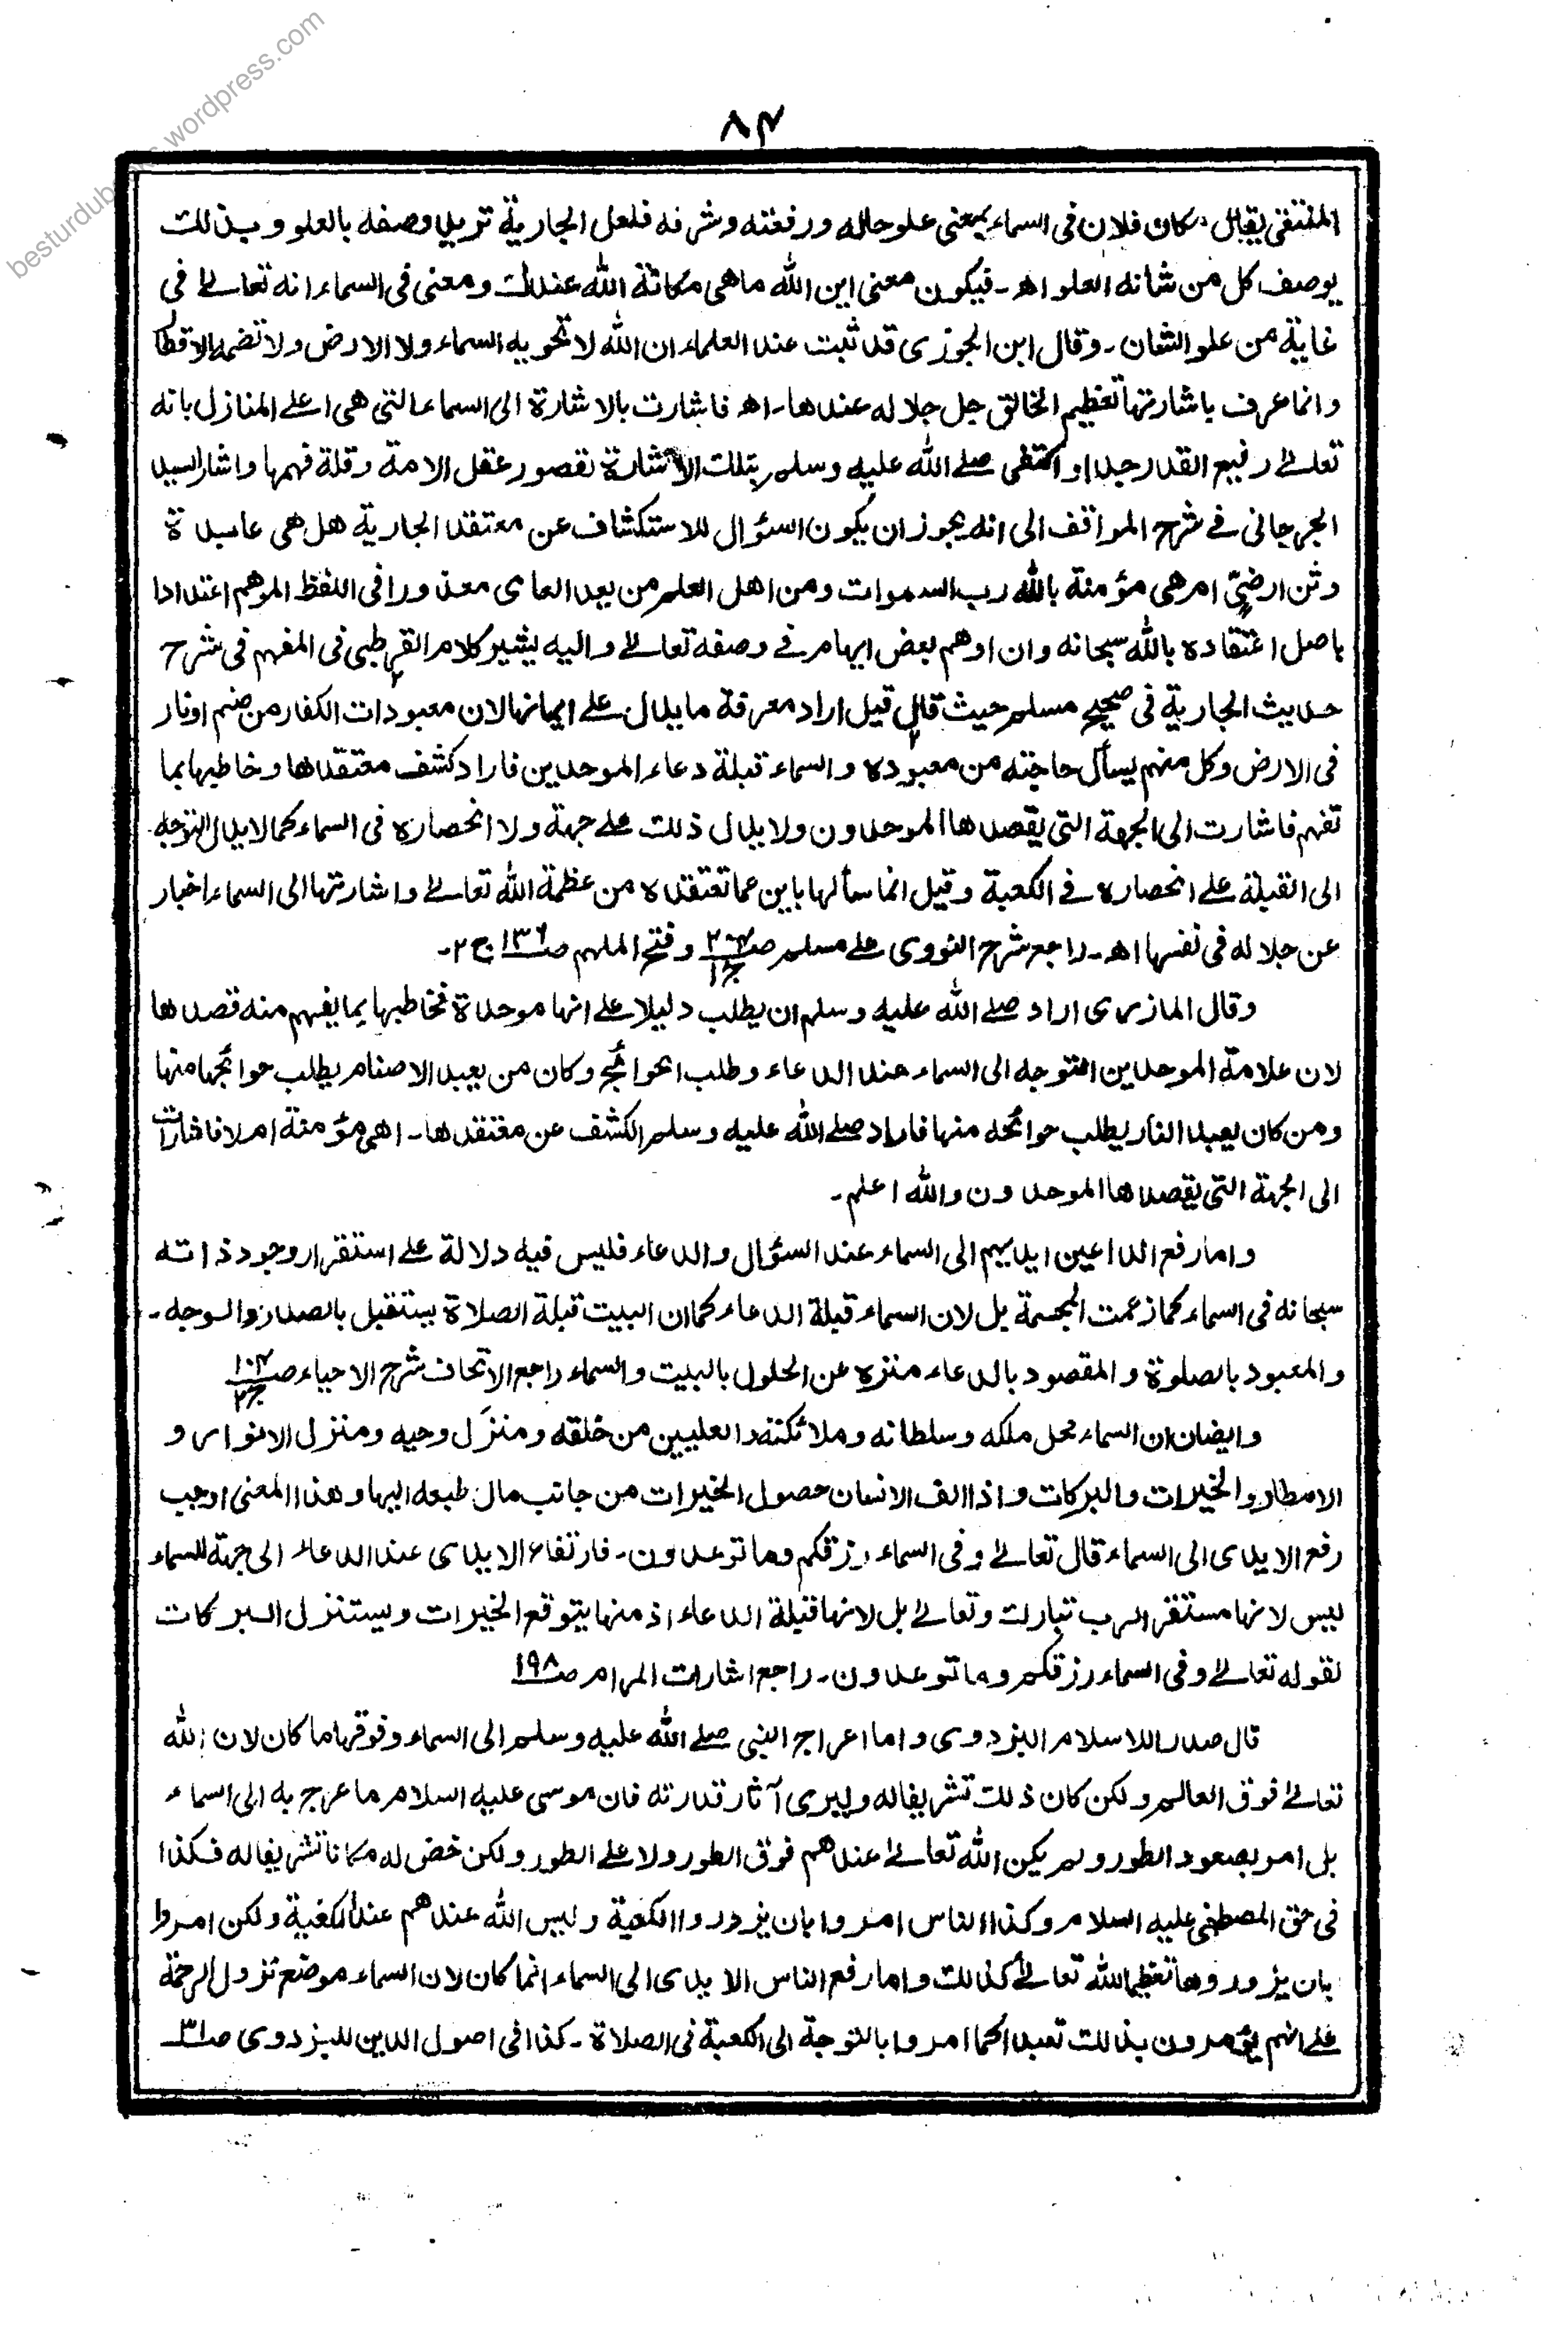 besturdub ks.wordpress.com
۸۴
المنتقى يقال مكان فلان فى السماء بمعنى علو حاله ورفعته وشرفه فلعل الجارية تريد وصفه بالعلو وبذلك
يوصف كل من شانه العلو اھ۔ فيكون معنى اين الله ما هى مكانة الله عندك ومعنى فى السماء انه تعالے فى
غاية من علو الشان۔ وقال ابن الجوزى قد ثبت عند العلماء ان الله لا تحويه السماء ولا الارض ولا تضمه الاقطا
وانما عرف باشارتها تعظيم الخالق جل جلاله عندها۔ اھ فاشارت بالاشارة الى السماء التى هى اعلے المنازل بانه
تعالے رفيع القدر جدا واكتفى صلے الله عليه وسلم بتلك الاشارة لقصور عقل الامة وقلة فهمها واشار السيد
الجرجانى فے شرح المواقف الى انه يجوز ان يكون السؤال للاستكشاف عن معتقد الجارية هل هى عابدة
وثن ارضىّ ام هى مؤمنة بالله رب السموات ومن اهل العلم من يعد العامى معذورا فى اللفظ الموهم اعتدادا
باصل اعتقاده بالله سبحانه وان اوهم بعض ايهام فے وصفه تعالے واليه يشير كلام القرطبى فى المفهم فى شرح
حديث الجارية فى صحيح مسلم حيث قال قيل اراد معرفة ما يدل على ايمانها لان معبودات الكفار من صنم او نار
فى الارض وكل منهم يسأل حاجته من معبوده والسماء قبلة دعاء الموحدين فاراد كشف معتقدها وخاطبها بما
تفهم فاشارت الى الجهة التى يقصدها الموحدون ولا يدل ذلك علے جهة ولا انحصاره فى السماء كما لا يدل التوجه
الى القبلة علے انحصاره فے الكعبة وقيل انما سألها باين عما تعتقده من عظمة الله تعالے واشارتها الى السماء اخبار
عن جلاله فى نفسها اھ۔ راجع شرح النووى علے مسلم ص۲۰۴ ج۱ وفتح الملهم ص۱۳۶ ج ۲۔
وقال المازرى اراد صلے الله عليه وسلم ان يطلب دليلا علے انها موحدة فخاطبها بما يفهم منه قصدها
لان علامة الموحدين التوجه الى السماء عند الدعاء وطلب الحوائج وكان من يعبد الاصنام يطلب حوائجها منها
ومن كان يعبد النار يطلب حوائجه منها فاراد صلے الله عليه وسلم الكشف عن معتقدها۔ اهى مؤمنة ام لا فاشارت
الى الجهة التى يقصدها الموحدون والله اعلم۔
واما رفع الداعين ايديهم الى السماء عند السؤال والدعاء فليس فيه دلالة علے استقرار وجود ذاته
سبحانه فى السماء كما زعمت المجسمة بل لان السماء قبلة الدعاء كما ان البيت قبلة الصلاة يستقبل بالصدر والوجه۔
والمعبود بالصلوة والمقصود بالدعاء منزه عن الحلول بالبيت والسماء راجع الاتحاف شرح الاحياء ص۱۰۴ ج۲
وايضا ان السماء محل ملكه وسلطانه وملائكته والعليين من خلقه ومنزَل وحيه ومنزل الانوار و
الامطار والخيرات والبركات واذا الف الانسان حصول الخيرات من جانب مال طبعه اليها وهذا المعنى اوجب
رفع الايدى الى السماء قال تعالے وفى السماء رزقكم وما توعدون۔ فارتفاع الايدى عند الدعاء الى جهة السماء
ليس لانها مستقر الرب تبارك وتعالے بل لانها قبلة الدعاء اذ منها يتوقع الخيرات ويستنزل البركات
لقوله تعالے وفى السماء رزقكم وما توعدون۔ راجع اشارات المرام ص۱۹۸
قال صدر الاسلام البزدوى واما اعراج النبى صلے الله عليه وسلم الى السماء وفوقها ما كان لان الله
تعالے فوق العالم ولكن كان ذلك تشريفا له وليرى آثار قدرته فان موسى عليه السلام ما عرج به الى السماء
بل امر بصعود الطور ولم يكن الله تعالے عندهم فوق الطور ولا علے الطور ولكن خض له مكانا تشريفا له فكذا
فى حق المصطفى عليه السلام وكذا الناس امروا بان يزوروا الكعبة وليس الله عندهم عند الكعبة ولكن امروا
بان يزوروها تعظيما لله تعالے كذلك واما رفع الناس الايدى الى السماء انما كان لان السماء موضع نزول الرحمة
علے انهم يؤمرون بذلك تعبدا كما امروا بالتوجة الى الكعبة فى الصلاة۔ كذا فى اصول الدين للبزدوى ص۳۱